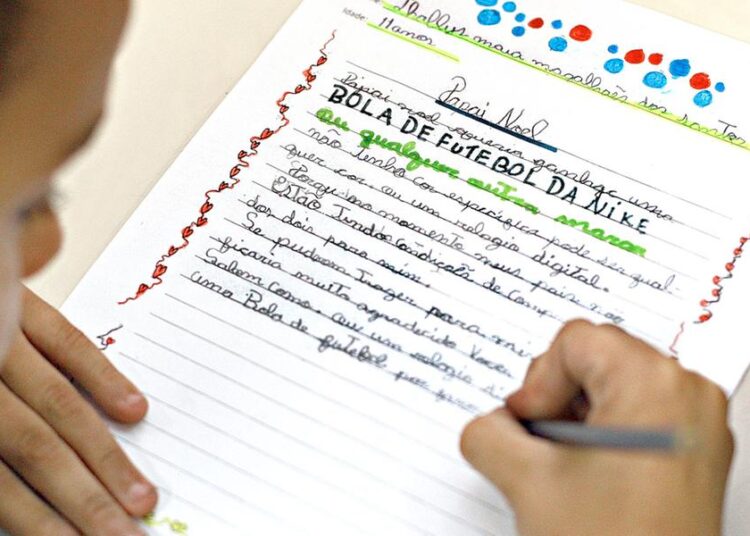 Thallys maia magalhães dos santos
Idade:
11 anos
Papai Noel
Papai noel queria ganhar uma
BOLA DE FUTEBOL DA NIKE
ou qualquer outra marca
não tenho cor específica pode ser qual-
quer cor. ou um relogio digital.
Porqui no momento meus pais não
Estão Tendo condição de comp
dos dois para mim.
Se puderem Trazer para mim
ficaria muito agradecido
uma Bola de futebol